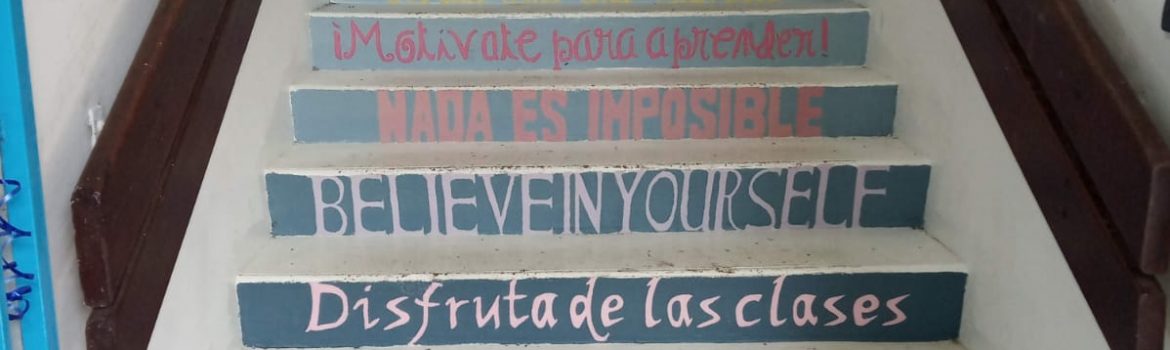 ¡Motivate para aprender!
NADA ES IMPOSIBLE
BELIEVE IN YOURSELF
Disfruta de las clases